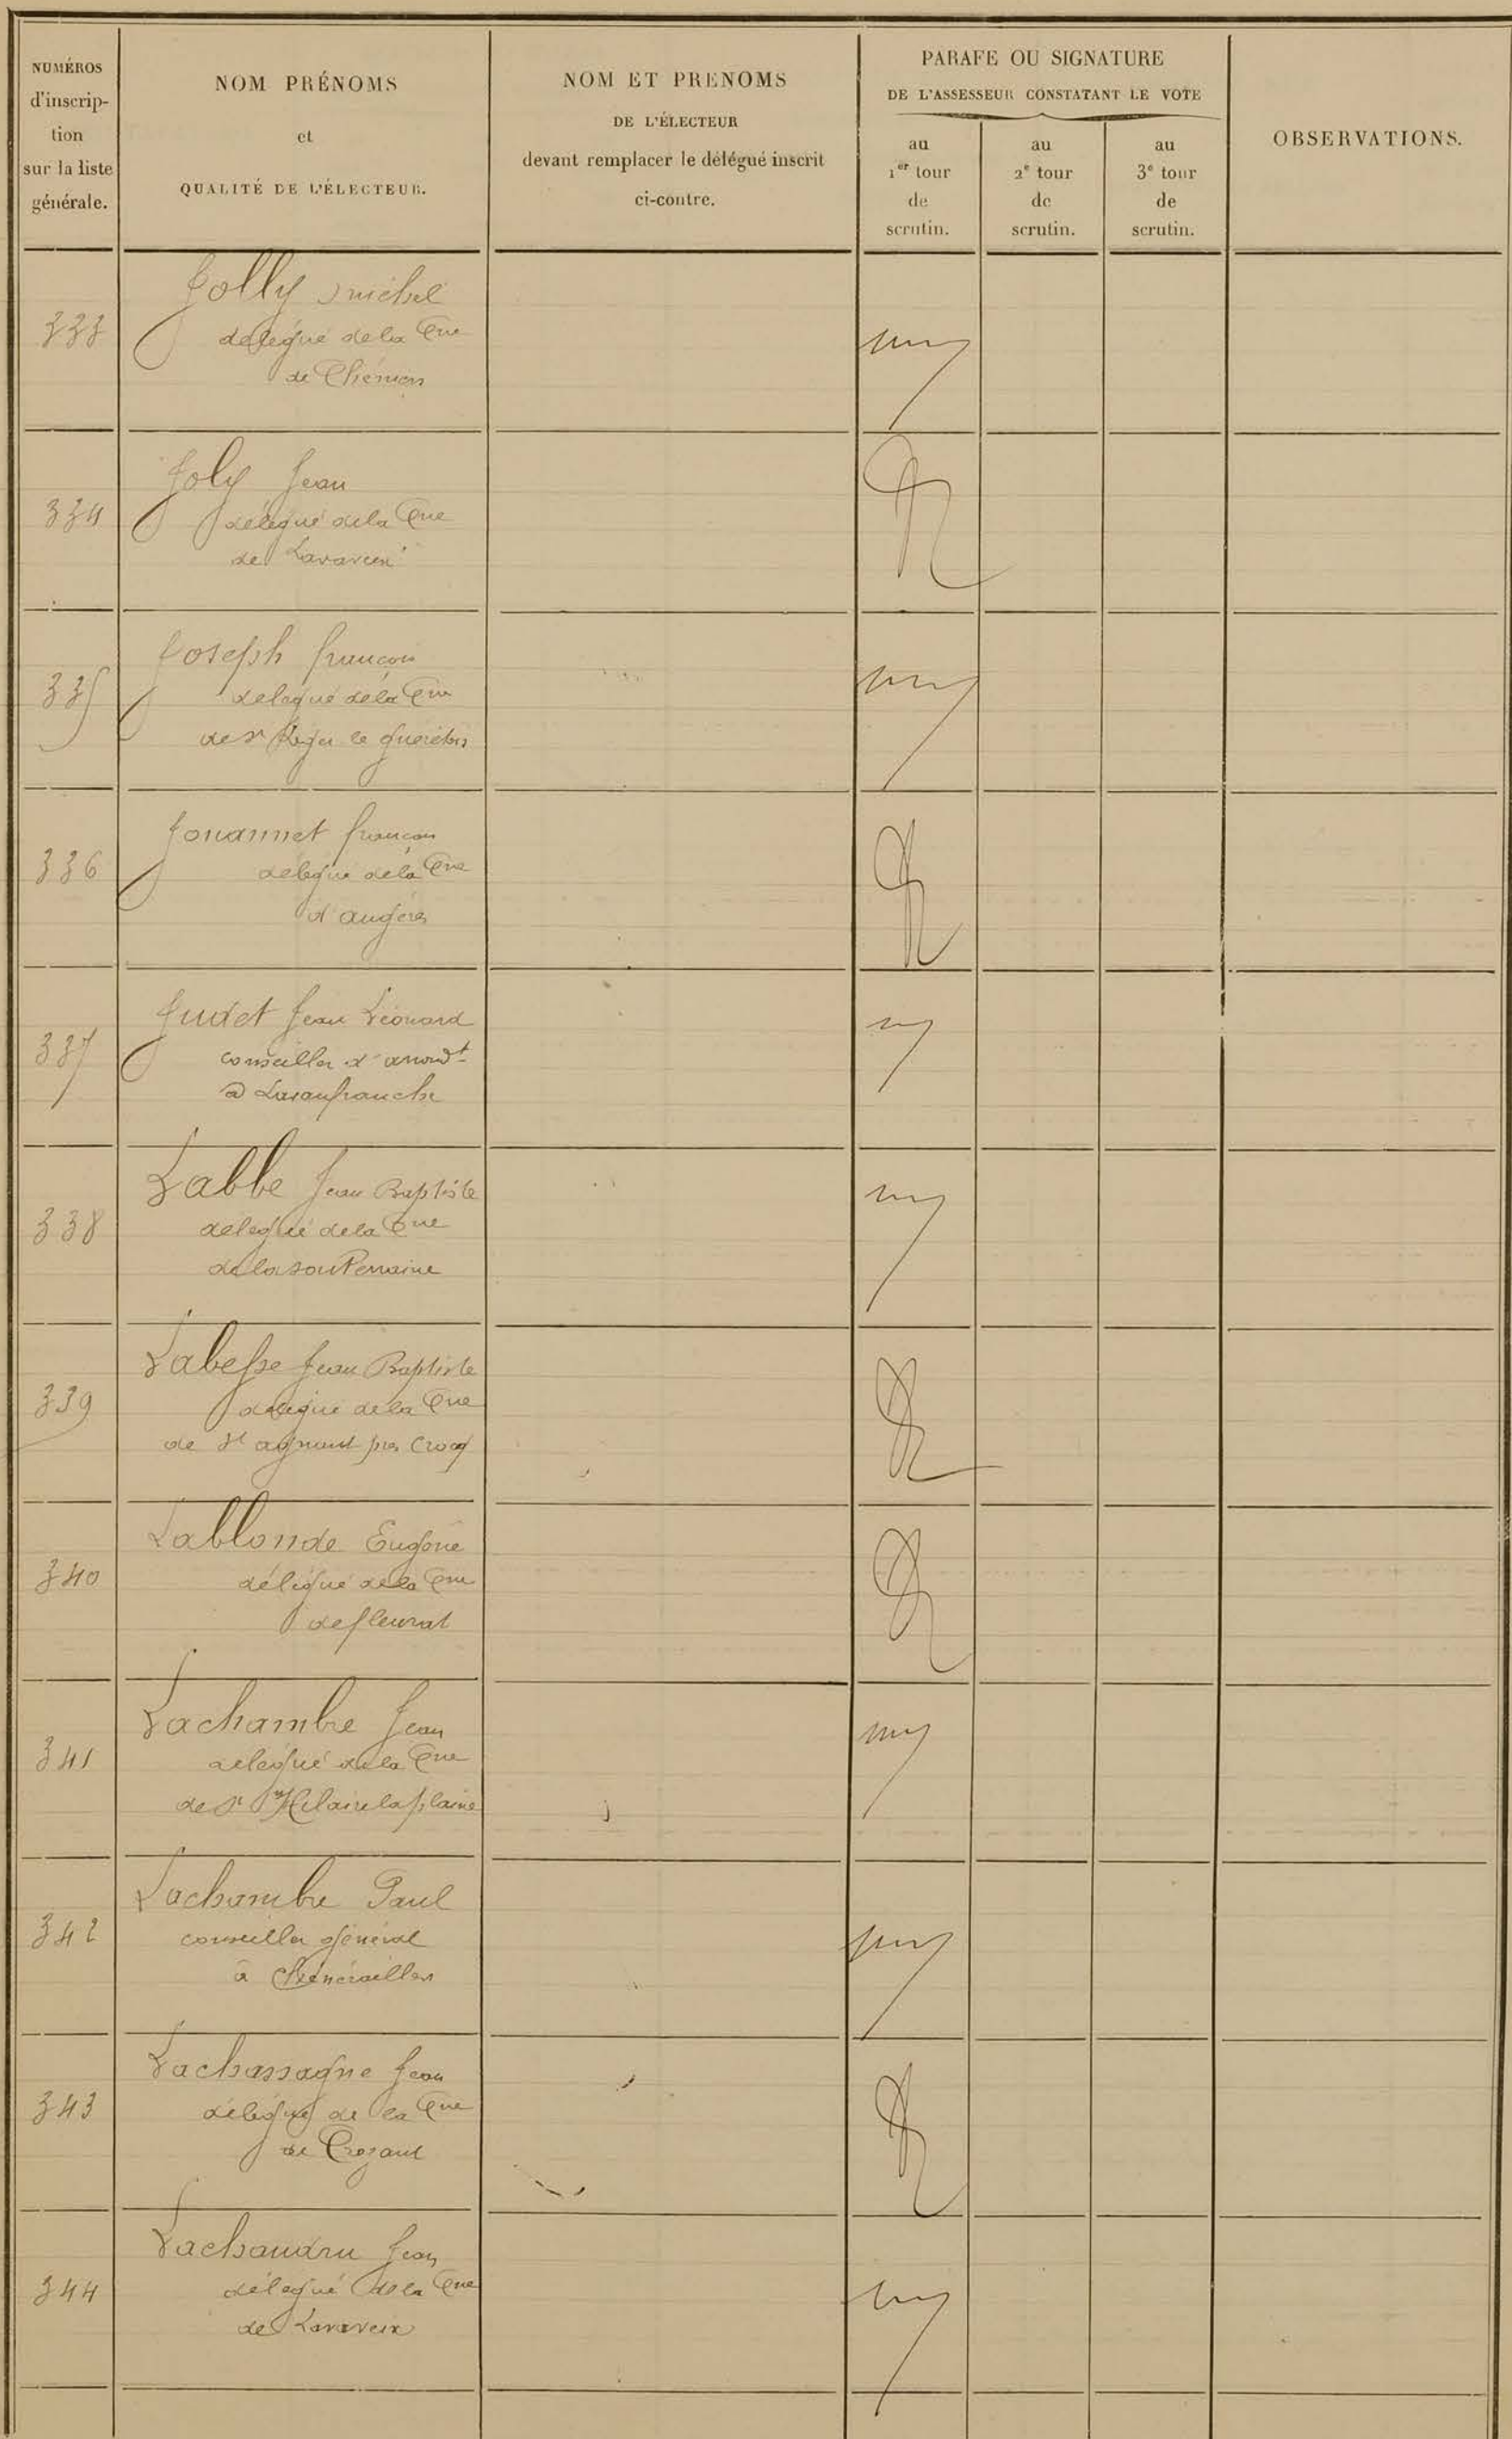 NUMÉROS
d'inscrip-
tion
sur la liste
générale.
NOM PRÉNOMS
et
QUALITÉ DE L'ÉLECTEUR.
NOM ET PRENOMS
DE L'ÉLECTEUR
devant remplacer le délégué inscrit
ci-contre.
PARAFE OU SIGNATURE
DE L'ASSESSEUR CONSTATANT LE VOTE
au
1er tour
de
scrutin.
au
2e tour
de
scrutin.
au
3e tour
de
scrutin.
OBSERVATIONS.
333
Jolly Michel
délégué de la Cne
de Chéniers
334
Joly Jean
délégué de la Cne
de Lavaveix
335
Joseph françois
délégué de la Cne
de St Léger le guerétois
336
Jouannet françois
délégué de la Cne
d'augères
337
Judet Jean Léonard
conseiller d'arrondt
à Lusaufranche
338
Labbe Jean Baptiste
délégué de la Cne
de la souterraine
339
Labesse Jean Baptiste
délégué de la Cne
de St agnant près Crocq
340
Lablonde Eugène
délégué de la Cne
de fleurat
341
Lachambre Jean
délégué de la Cne
de St Hilaire la plaine
342
Lachambre Paul
conseiller général
à Chénérailles
343
Lachassagne Jean
délégué de la Cne
de Crozant
344
Jean
délégué de la Cne
de Lavaveix